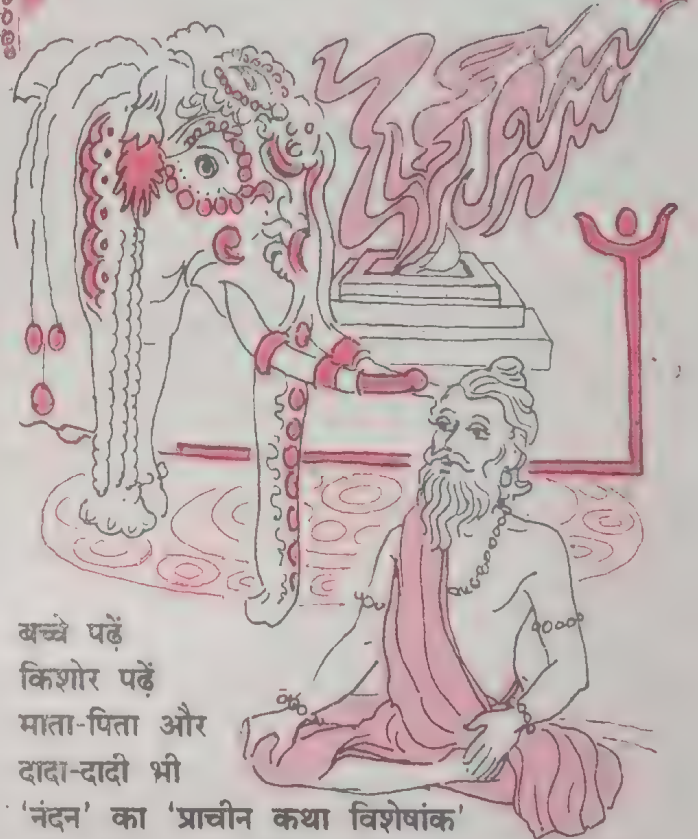 बच्चे पढ़ें
किशोर पढ़ें
माता-पिता और
दादा-दादी भी
'नंदन' का 'प्राचीन कथा विशेषांक'